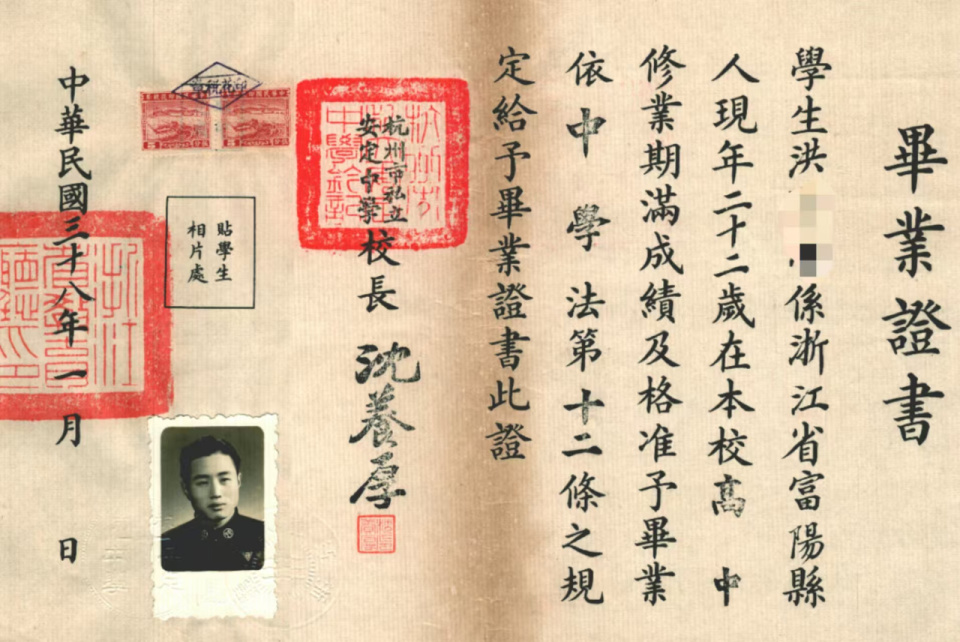 畢業證書
學生洪
係浙江省富陽縣
人現年二十二歲在本校高中
修業期滿成績及格准予畢業
依中學法第十二條之規
定給予畢業證書此證
杭州市私立
安定中學
校長
沈養厚
貼學生
相片處
中華民國三十八年一月 日